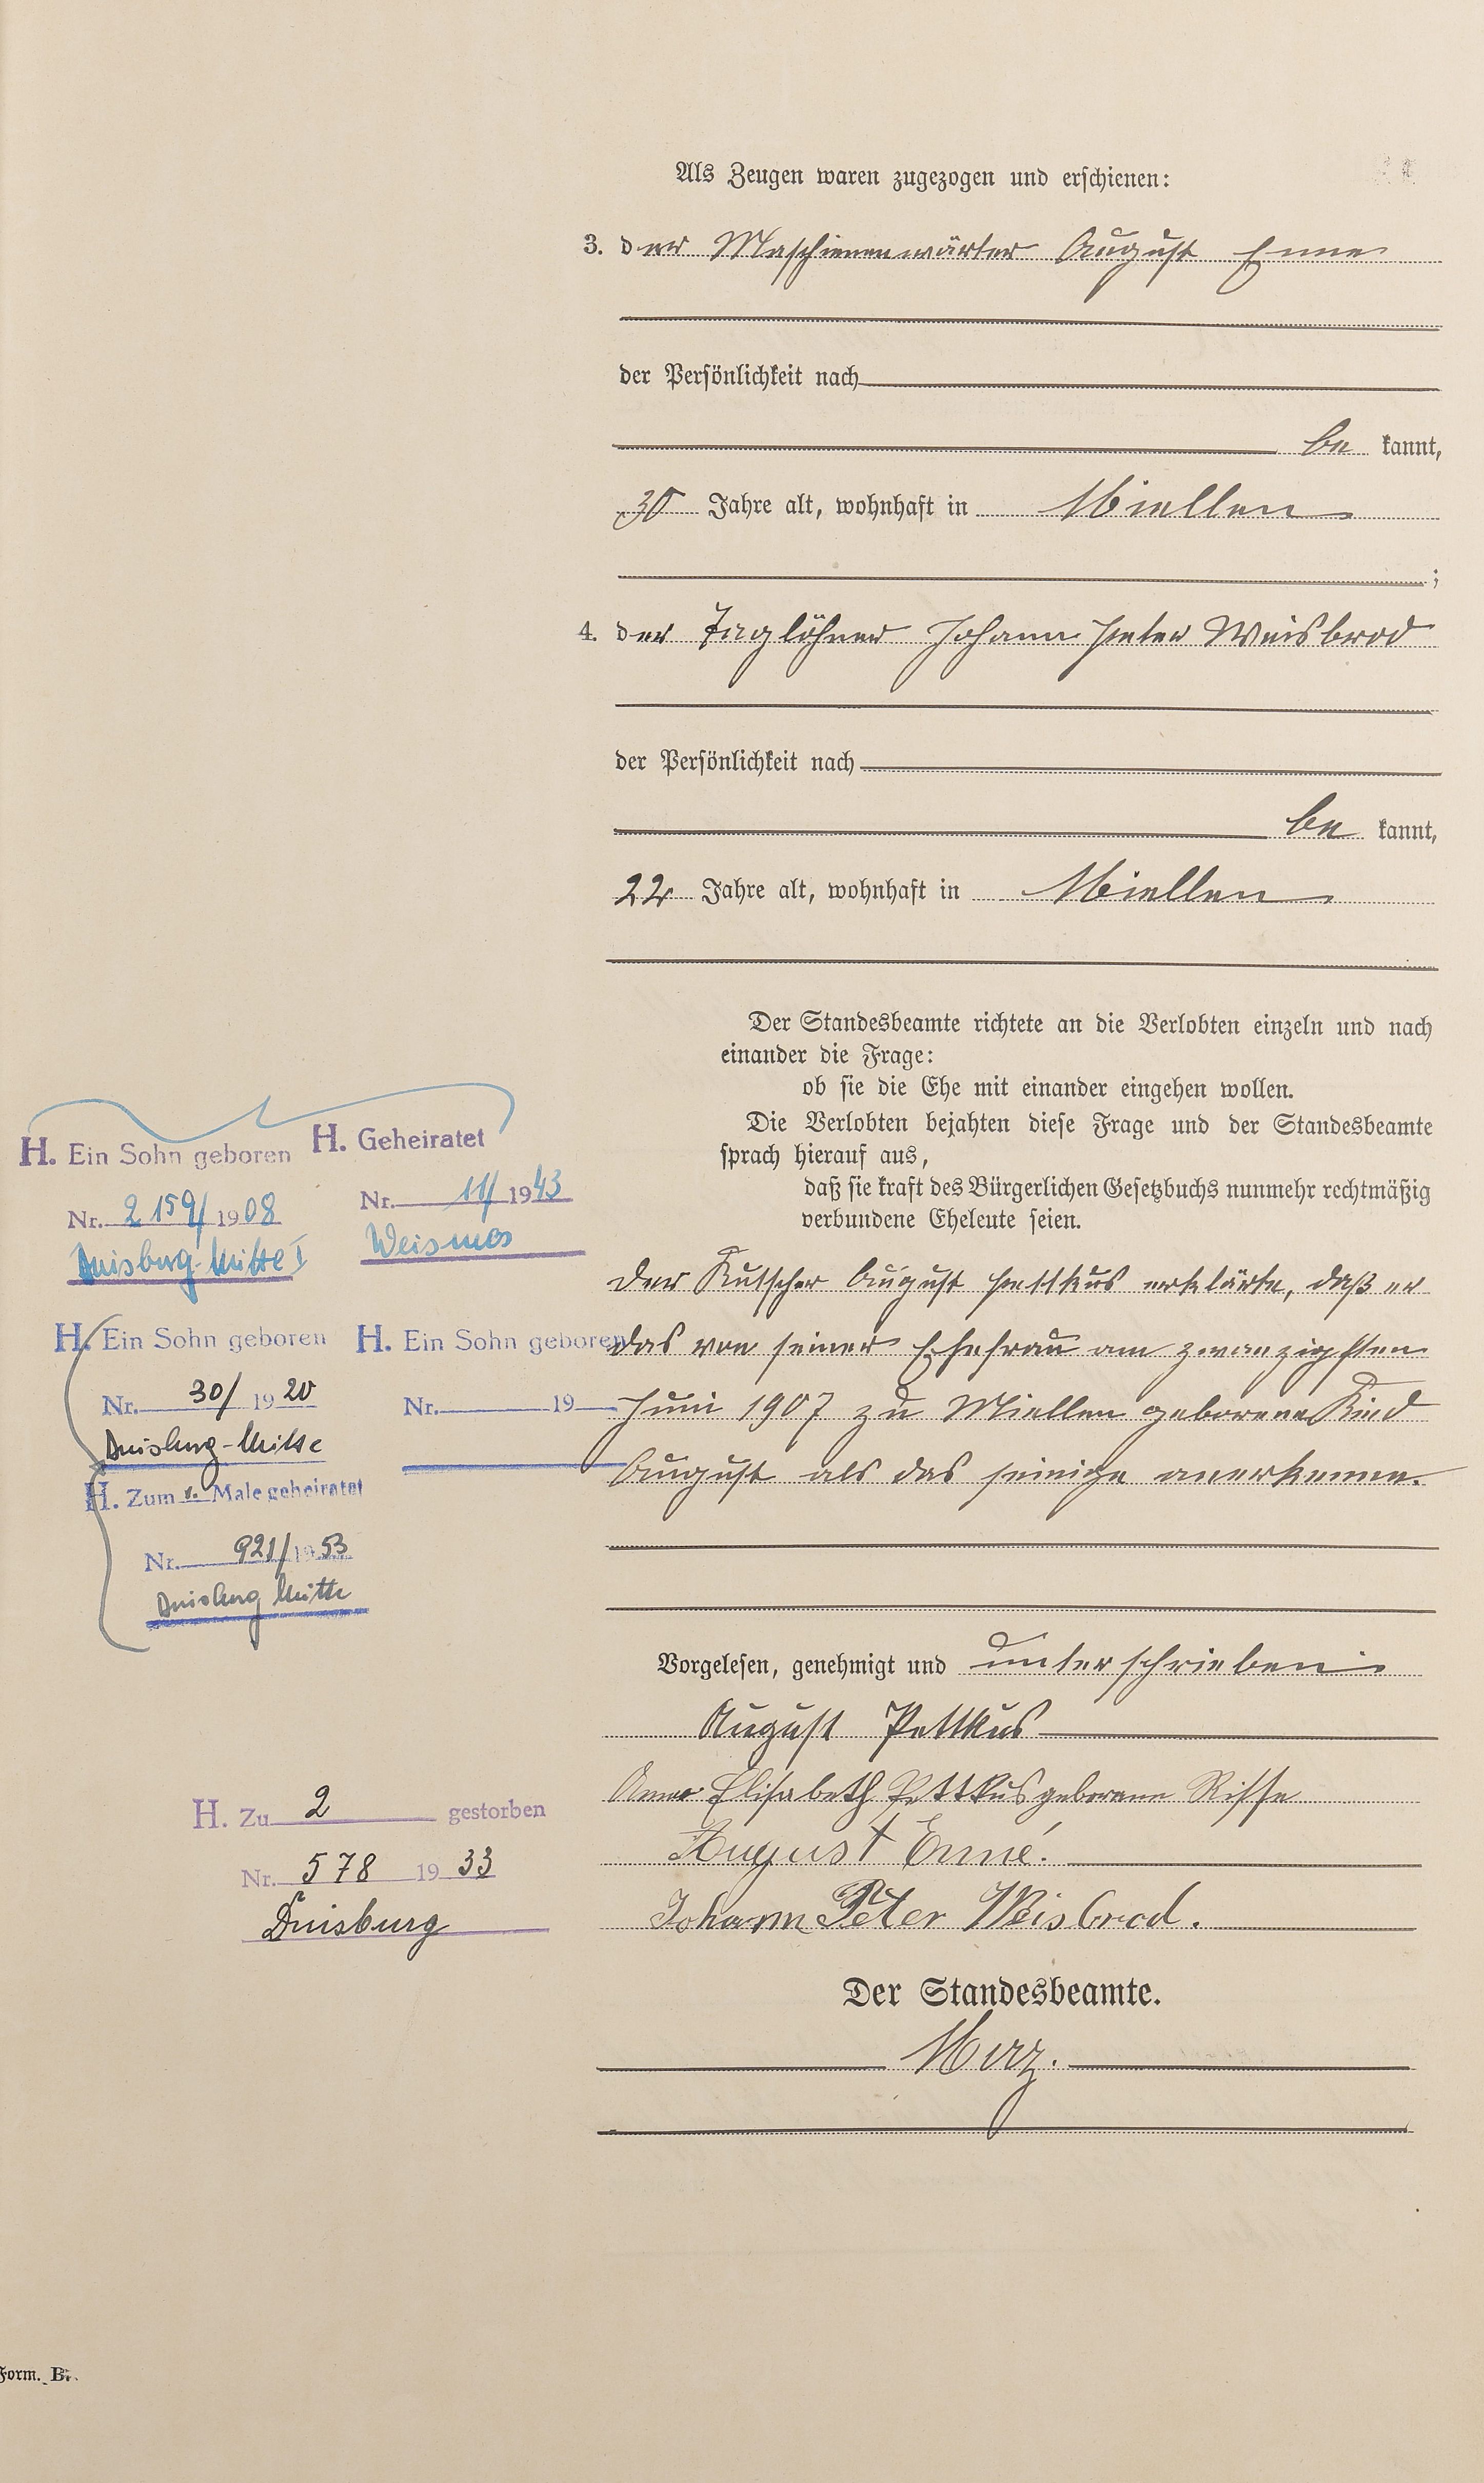 Als Zeugen waren zugezogen und erschienen:
3. der Maschienenwärter August Enne
der Persönlichkeit nach
be kannt,
30 Jahre alt, wohnhaft in Miellen
;
4. der Taglöhner Johann Peter Weisbrod
der Persönlichkeit nach
be kannt,
22 Jahre alt, wohnhaft in Miellen
Der Standesbeamte richtete an die Verlobten einzeln und nach
einander die Frage:
ob sie die Ehe mit einander eingehen wollen.
Die Verlobten bejahten diese Frage und der Standesbeamte
sprach hierauf aus,
daß sie kraft des Bürgerlichen Gesetzbuchs nunmehr rechtmäßig
verbundene Eheleute seien.
Der Kutscher August Pettkus erklärte, daß er
das von seiner Ehefrau am zwanzigsten
Juni 1907 zu Miellen geborene Kind
August als das seinige anerkenne.
Vorgelesen, genehmigt und unterschrieben.
August Pettkus
Anna Elisabeth Pettkus geborene Risse
August Enné.
Johann Peter Weisbrod.
Der Standesbeamte.
Merz.
H. Ein Sohn geboren
Nr. 2159/1908
Duisburg-Mitte I
H. Geheiratet
Nr. 11/1943
Weismes
H. Ein Sohn geboren
Nr. 30/1920
Duisburg-Mitte
H. Ein Sohn geboren
Nr. 19
H. Zum 1. Male geheiratet
Nr. 921/1953
Duisburg Mitte
H. Zu 2 gestorben
Nr. 578 1933
Duisburg
Form. B.